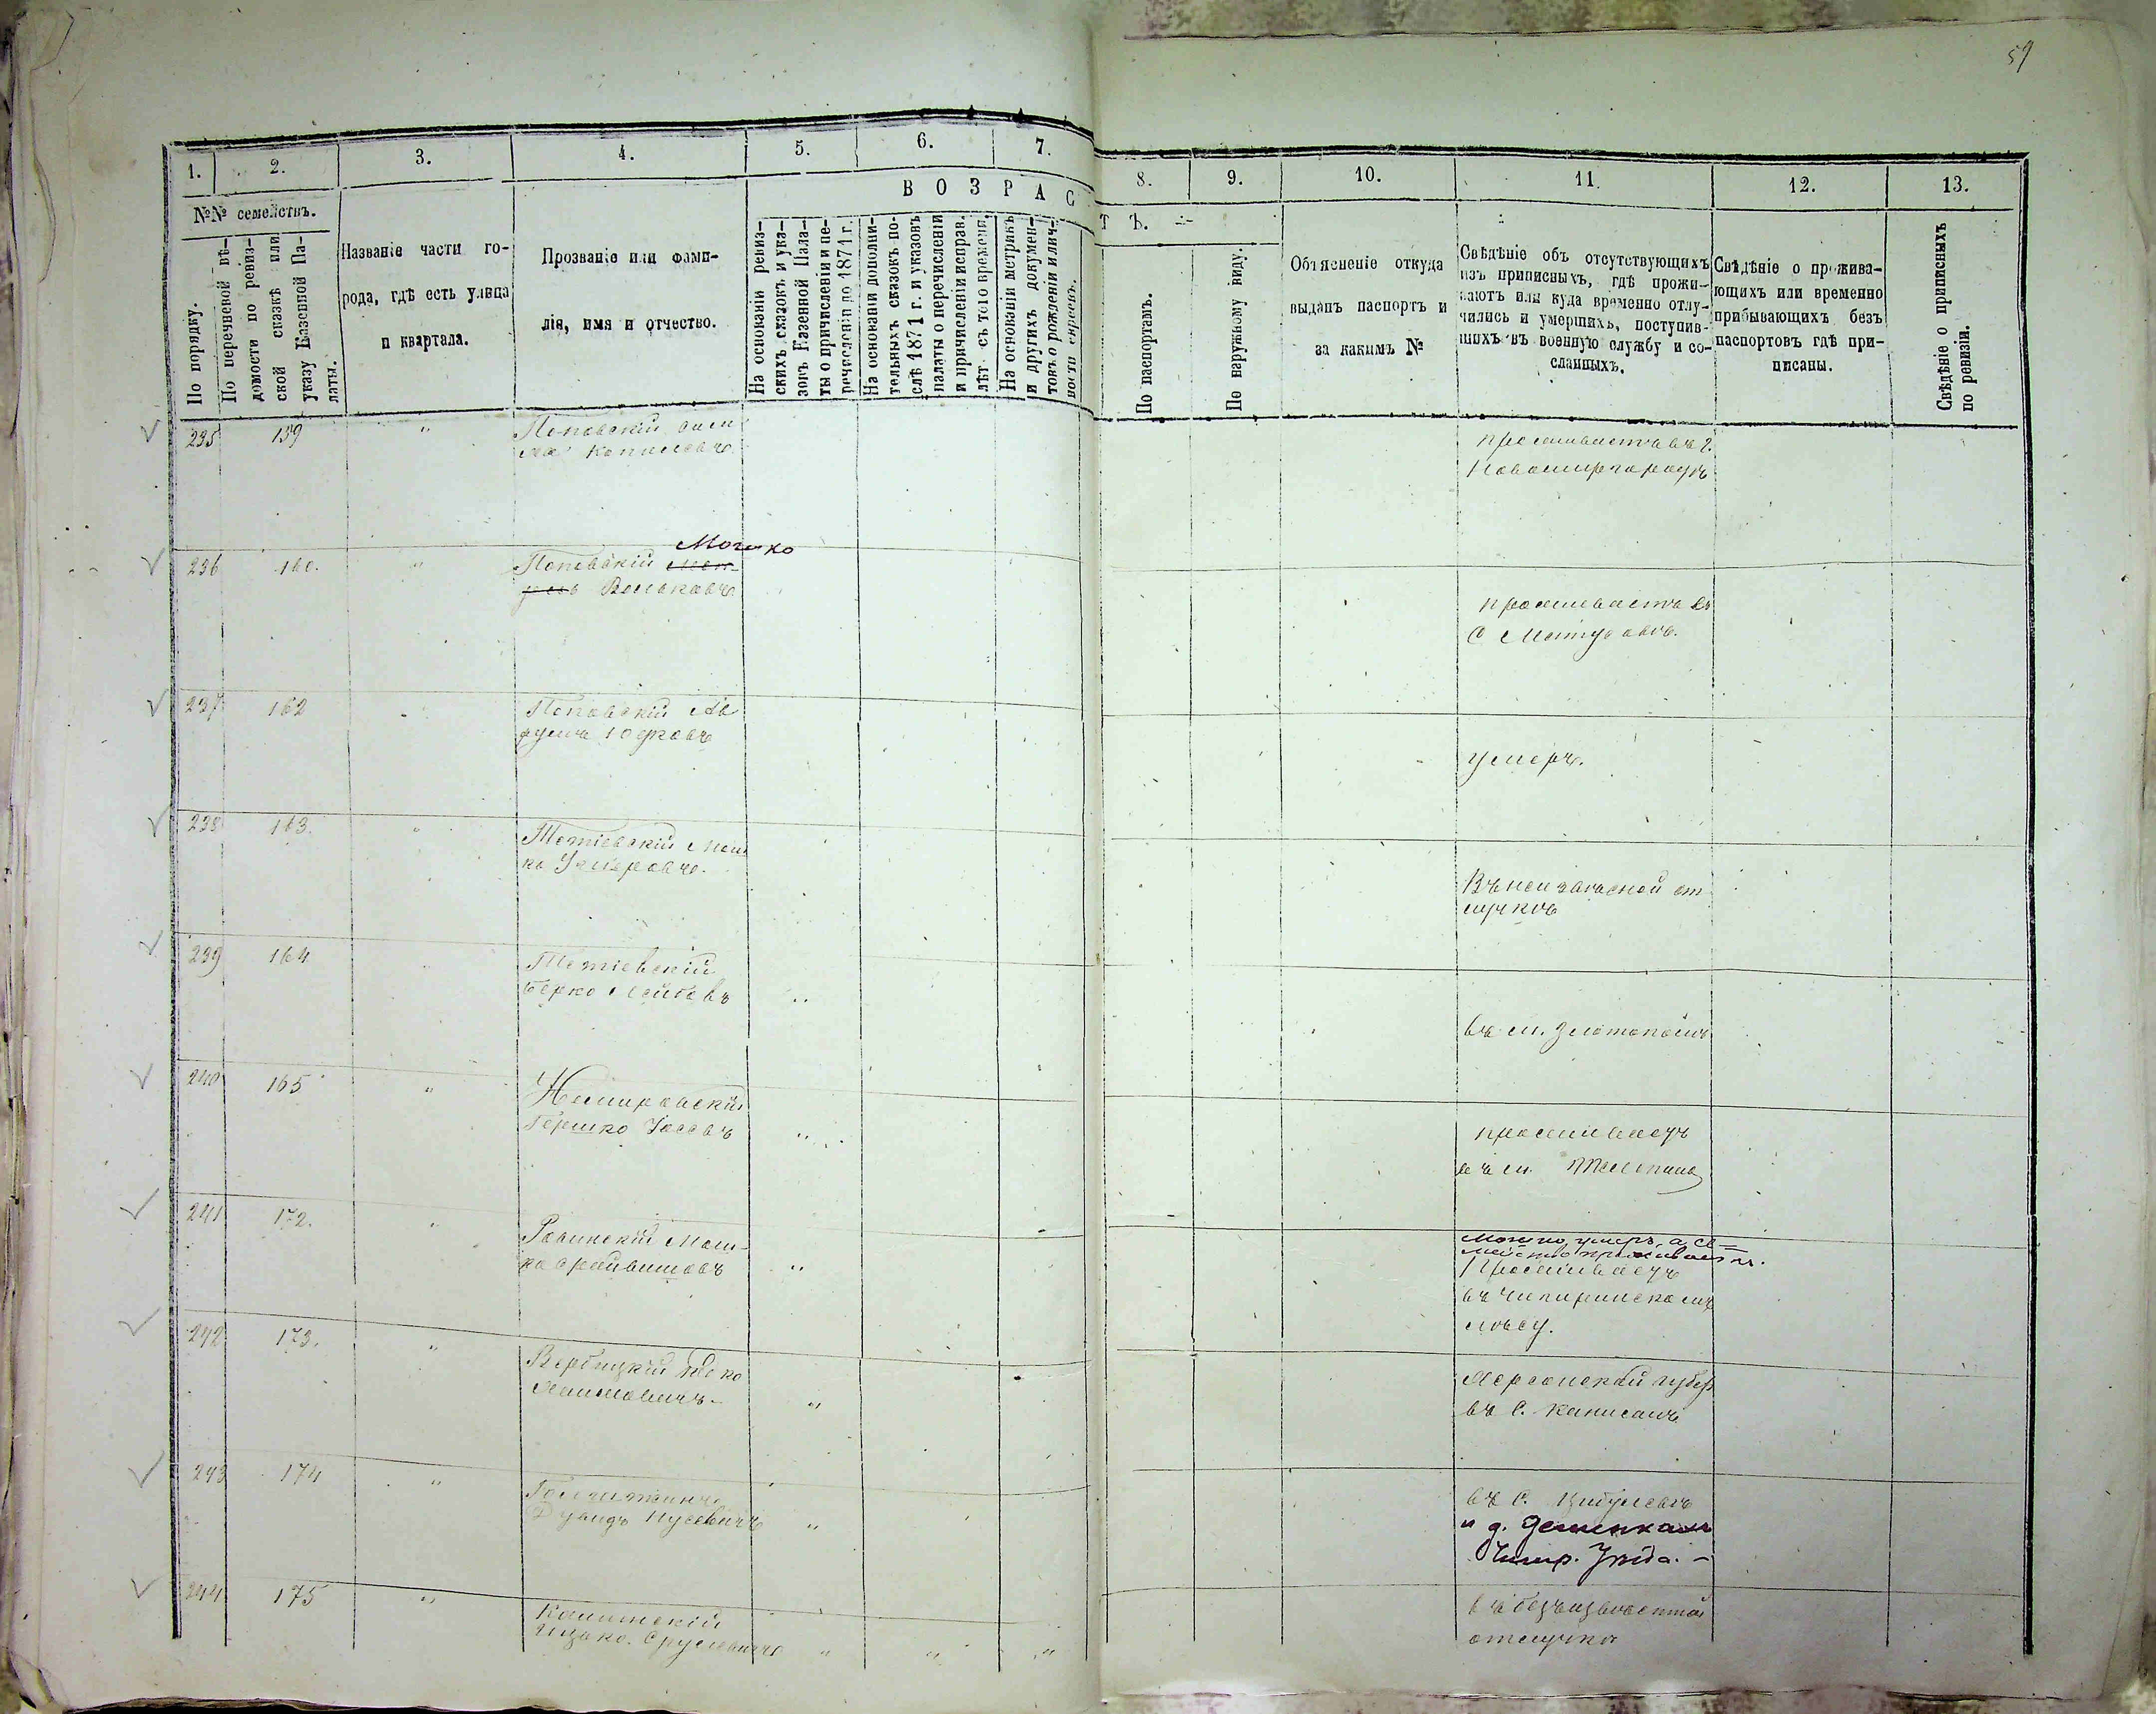 59
1.
2.
3.
4.
5.
6.
7.
8.
9.
10.
11.
12.
13.
№№ семействъ.
По порядку.
По перечневой вѣ-
домости по ревиз-
ской сказкѣ или
указу Казенной Па-
латы.
Названіе части го-
рода, гдѣ есть улица
и квартала.
Прозваніе или фами-
лія, имя и отчество.
ВОЗРАС
ТЪ.
На основаніи ревиз-
скихъ сказокъ и ука-
зовъ Казенной Пала-
ты о причисленіи и пе-
речисленіи до 1871 г.
На основаніи дополни-
тельныхъ сказокъ по-
слѣ 1871 г. и указовъ
палаты о перечисленіи
и причисленіи исправ.
лѣт съ того времени.
На основаніи метрикъ
и другихъ докумен-
товъ о рожденіи и лич-
ности евреевъ.
По паспортамъ.
По наружному виду.
Объясненіе откуда
выданъ паспортъ и
за какимъ №
Свѣдѣніе объ отсутствующихъ
изъ приписныхъ, гдѣ прожи-
ваютъ или куда временно отлу-
чились и умершихъ, поступив-
шихъ въ военную службу и со-
сланныхъ.
Свѣдѣніе о прожива-
ющихъ или временно
прибывающихъ безъ
паспортовъ гдѣ при-
писаны.
Свѣдѣніе о приписныхъ
по ревизіи.
235 159 " Поповскій
Копилевъ
проживаетъ въ г.
Новомиргородѣ
Мошко
236 160. " Поповскій
Вольковъ
проживаетъ въ
с Матусовѣ.
237 162 Поповскій Ав
румъ Юдковъ
умеръ.
238 163. " Тетіевскій Мош
ко Ушеровъ.
Въ
отлучкѣ
239 164 Тетіевскій
Берко Лейбовъ
въ м. Златополѣ
240 165 " Немировскій
Гершко Іоссовъ
проживаетъ
въ м.
241 172. Ровинскій Мош-
ко
Мошко умеръ, а се-
мейство проживаетъ.
Проживаетъ
въ Чигиринскомъ
242 173. " Вербицкій
Хаимовичъ.
Херсонской губер
въ с.
243 174 "
Дувидъ Нусевичъ "
въ с. Цибулевѣ
и д.
Чигир. Уѣзда. –
244 175 "
Ицко. Сруlевичъ " " "
въ безъизвѣстной
отлучкѣ